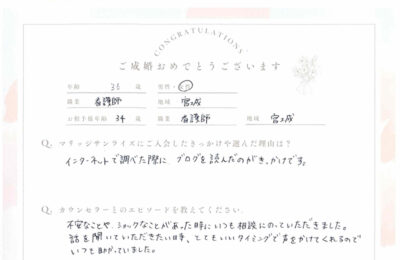 CONGRATULATIONS!
ご成婚おめでとうございます
年齢 36 歳 男性・女性
職業 看護師 地域 宮城
お相手様年齢 34 歳 職業 看護師 地域 宮城
Q. マリッジサンライズにご入会したきっかけや選んだ理由は?
インターネットで調べた際に、ブログを読んだのがきっかけです。
Q. カウンセラーとのエピソードを教えてください
不安なことや、ショックなことがあった時にいつも相談にのっていただきました。
話を聞いていただきたい時、とてもいいタイミングで声をかけてくれるので
いつも助かっていました。